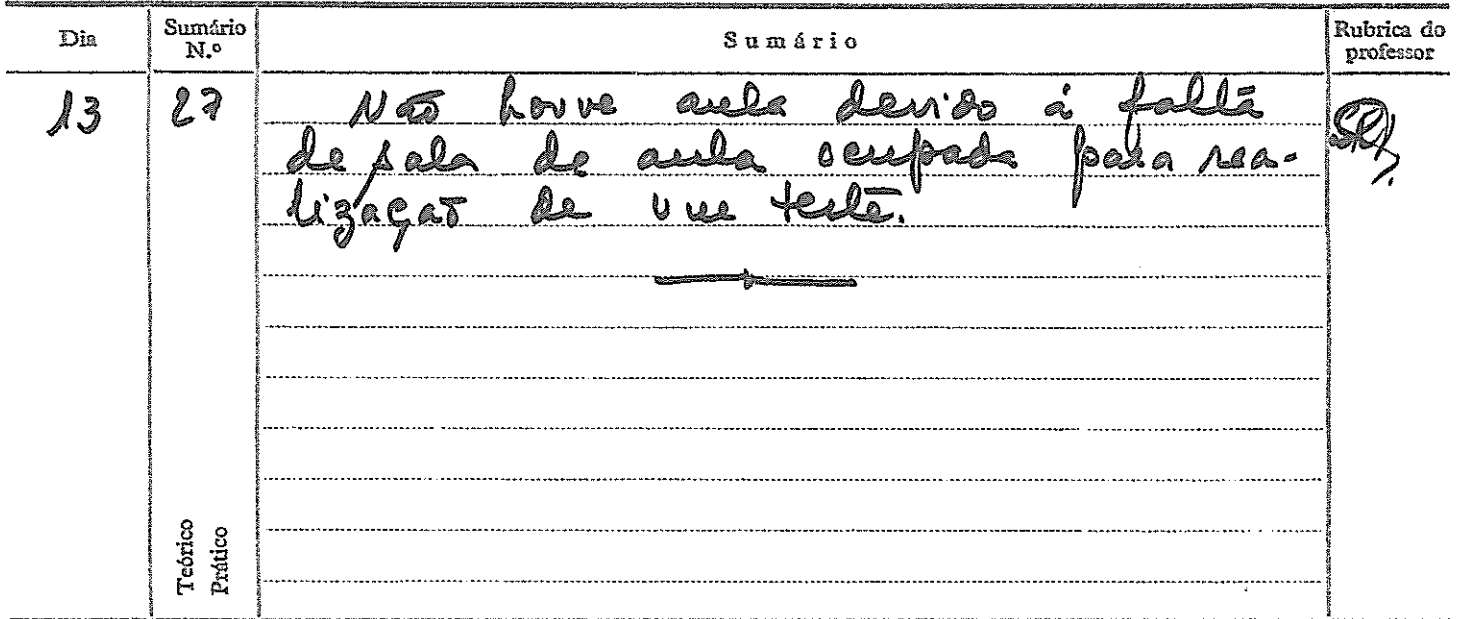 Dia Sumário N.º Sumário Rubrica do professor
13 27 Não houve aula devido á falta
de sala de aula ocupada para rea-
lização de um teste.
Teórico
Prático